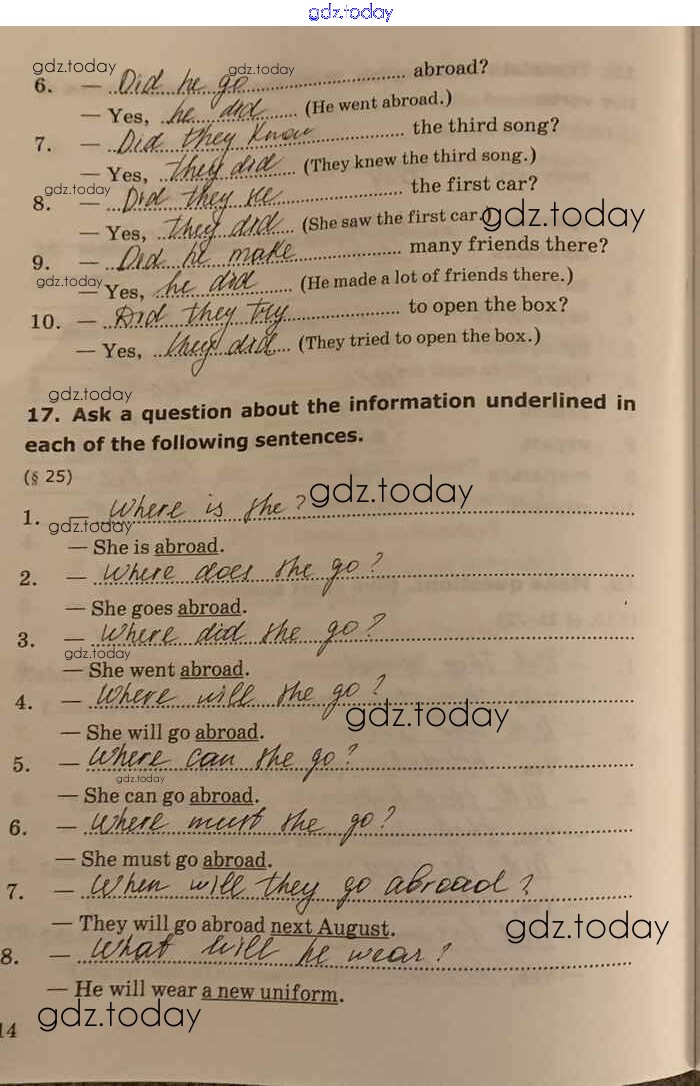 gdz.today
gdz.today gdz.today
6. — Did he go abroad?
— Yes, he did (He went abroad.)
7. — Did they know the third song?
— Yes, they did (They knew the third song.)
gdz.today
8. — Did they the first car?
— Yes, they did (She saw the first car.)
gdz.today
9. — Did he make many friends there?
gdz.today
— Yes, he did (He made a lot of friends there.)
10. — Did they try to open the box?
— Yes, they did (They tried to open the box.)
gdz.today
17. Ask a question about the information underlined in
each of the following sentences.
(§ 25)
gdz.today
1. — Where is she?
gdz.today
— She is abroad.
2. — Where does she go?
— She goes abroad.
3. — Where did she go?
gdz.today
— She went abroad.
4. — Where will she go?
gdz.today
— She will go abroad.
5. — Where can she go?
gdz.today
— She can go abroad.
6. — Where must she go?
— She must go abroad.
7. — When will they go abroad?
— They will go abroad next August.
gdz.today
8. — What will he wear?
— He will wear a new uniform.
gdz.today
14